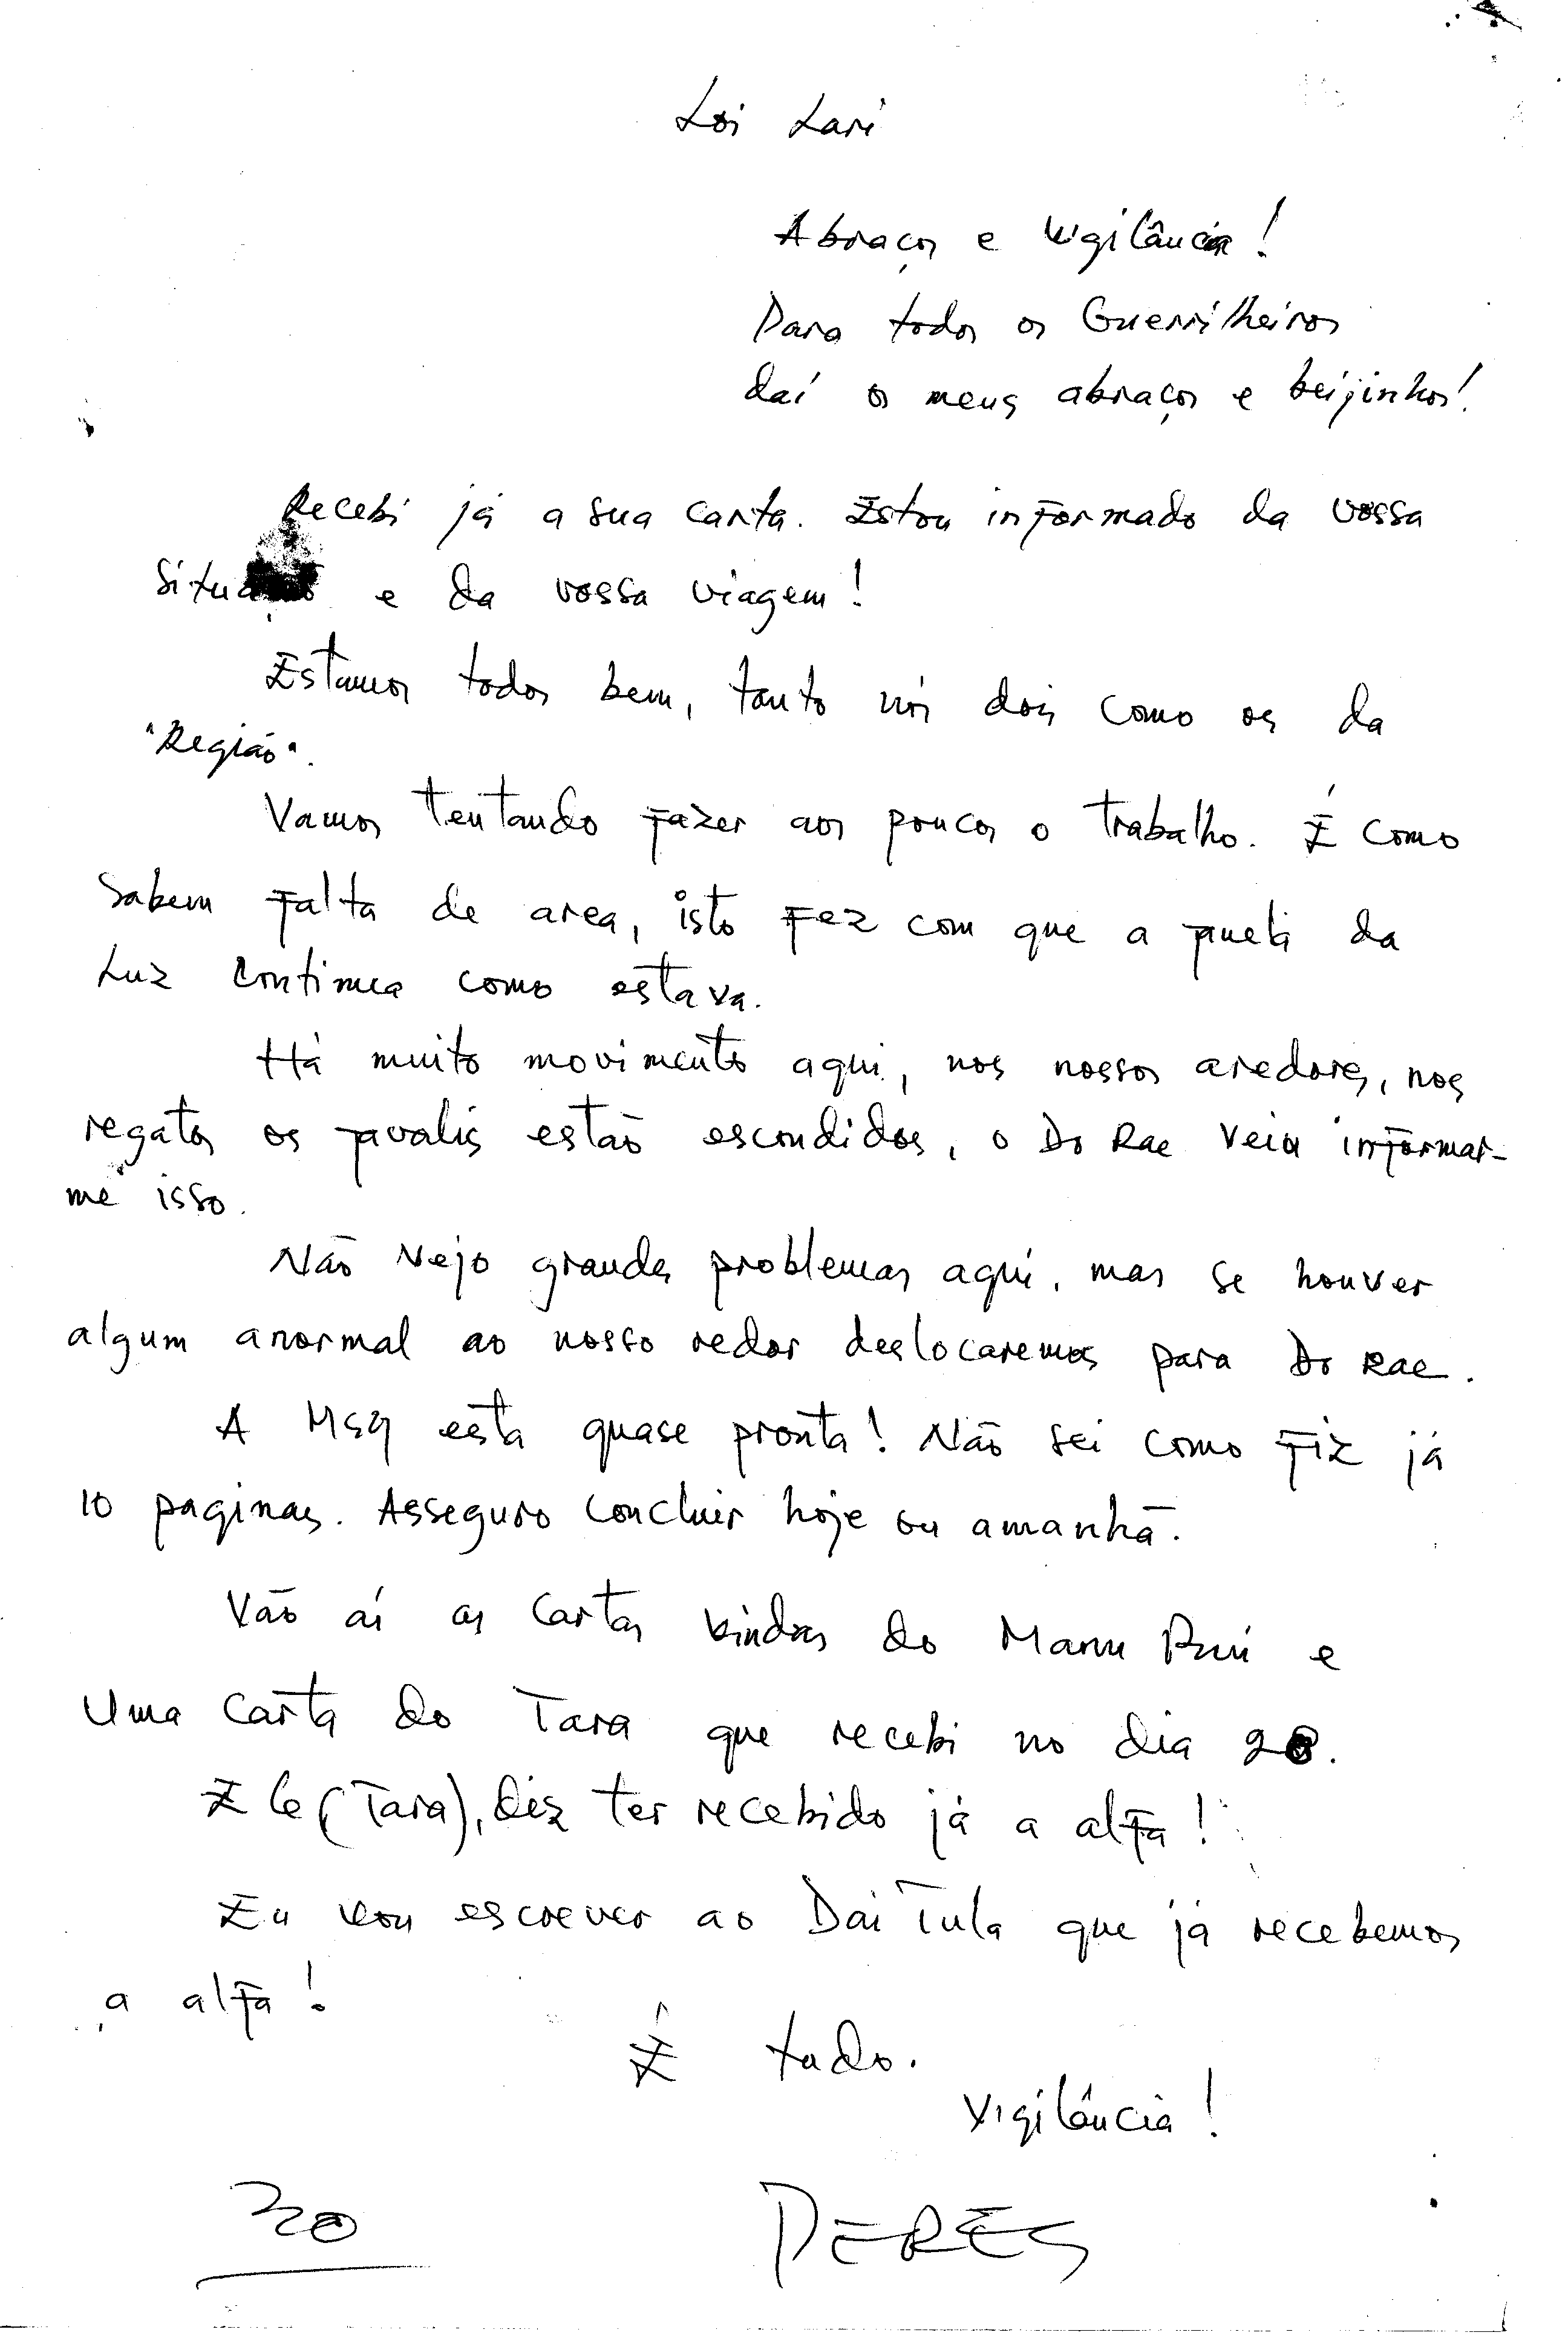 Loi Lari
Abraços e Vigilância!
Para todos os Guerrilheiros
daí os meus abraços e beijinhos!
Recebi já a sua carta. Estou informado da vossa
situação e da vossa viagem!
Estamos todos bem, tanto nós dois como os da
"Região".
Vamos tentando fazer aos poucos o trabalho. É como
sabem falta de area, isto fez com que a da
Luz continua como estava.
Há muito movimento aqui, nos nossos aredores, nos
regatos os estão escondidos, o Do Rae veio informar-
me isso.
Não vejo grandes problemas aqui, mas se houver
algum anormal ao nosso redor deslocaremos para Do Rae.
A Msg esta quase pronta! Não sei como fiz já
10 paginas. Asseguro concluir hoje ou amanhã.
Vão aí as cartas vindas do Manu Rui e
uma carta do Tara que recebi no dia 28.
Ele (Tara), diz ter recebido já a alfa!
Eu vou escrever ao Dai Tula que já recebemos
a alfa!
É tudo.
Vigilância!
30
PERES